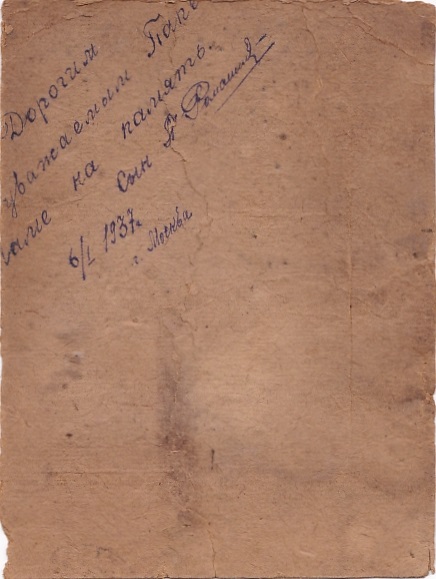 Дорогим
уважаемым Папе
маме на память.
Сын
6/I 1937г.
г. Москва